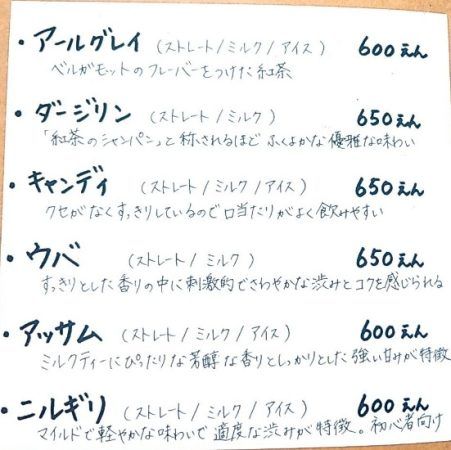 ・アールグレイ (ストレート/ミルク/アイス) 600えん
ベルガモットのフレーバーをつけた紅茶
・ダージリン (ストレート/ミルク) 650えん
「紅茶のシャンパン」と称されるほど ふくよかな優雅な味わい
・キャンディ (ストレート/ミルク/アイス) 650えん
クセがなくすっきりしているので口当たりがよく飲みやすい
・ウバ (ストレート/ミルク) 650えん
すっきりとした香りの中に刺激的でさわやかな渋みとコクを感じられる
・アッサム (ストレート/ミルク/アイス) 600えん
ミルクティーにぴったりな芳醇な香りとしっかりとした強い甘みが特徴
・ニルギリ (ストレート/ミルク/アイス) 600えん
マイルドで軽やかな味わいで適度な渋みが特徴。初心者向け